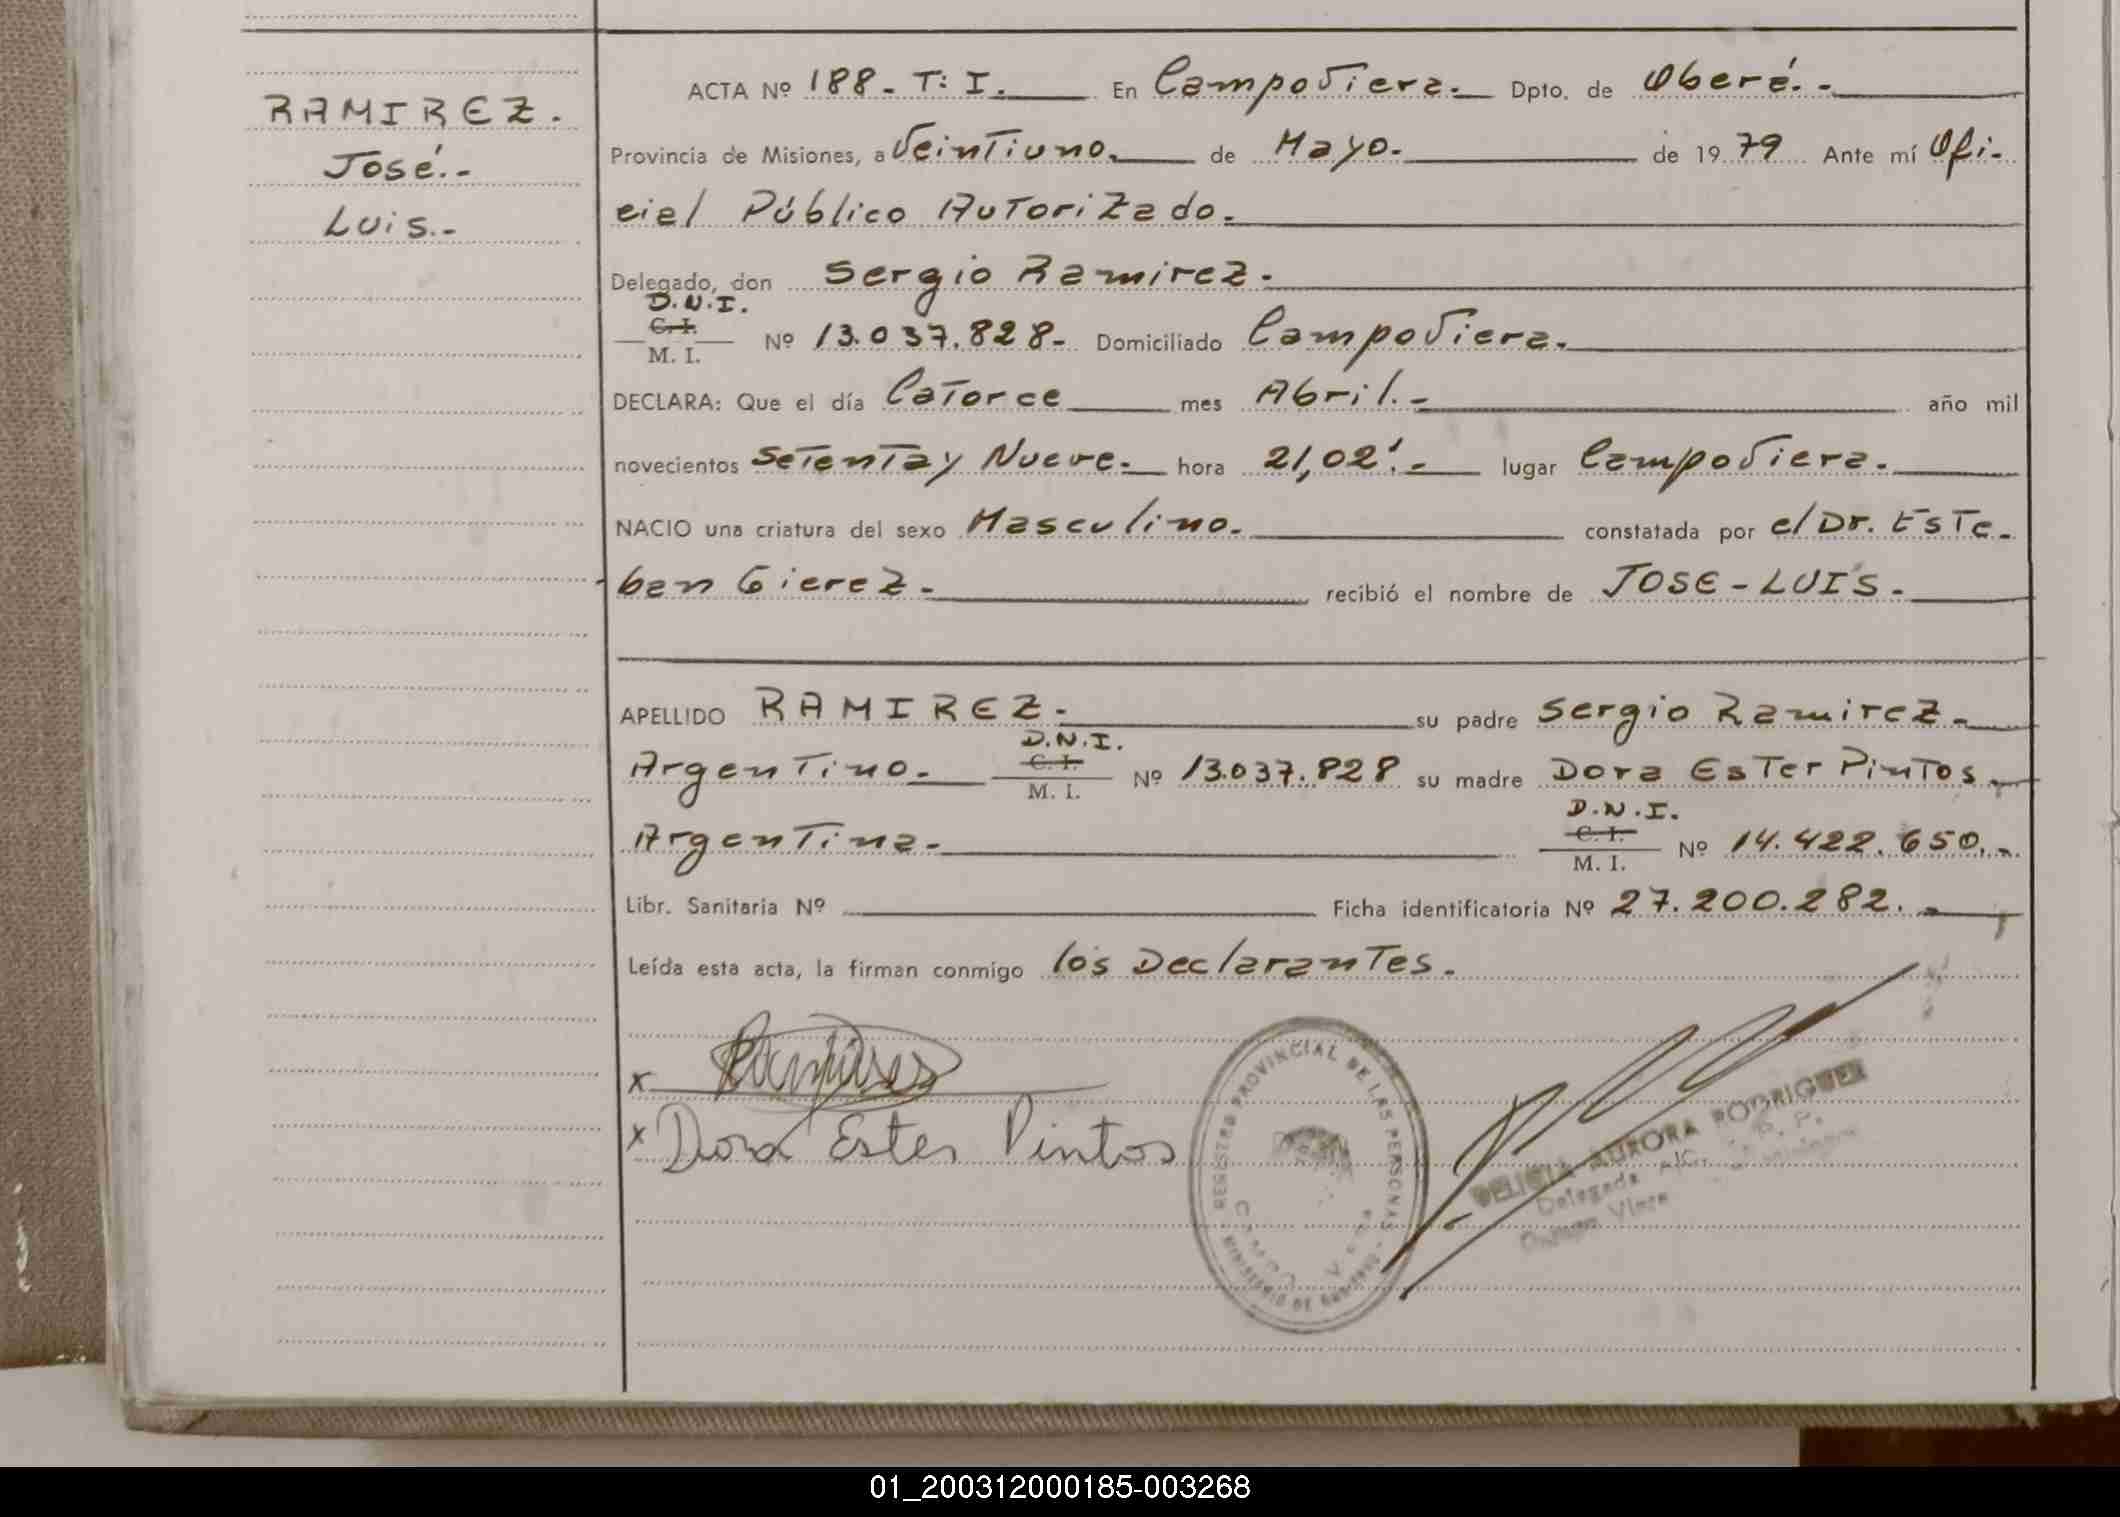 RAMIREZ.
José.-
Luis.-
ACTA Nº 188- T: I. En Campo Viera. Dpto. de Oberá.-
Provincia de Misiones, a Veintiuno. de Mayo. de 1979 Ante mí Ofi-
cial Público Autorizado.
Delegado, don Sergio Ramirez.
D.N.I.
C. I.
M. I. Nº 13.037.828- Domiciliado Campo Viera.
DECLARA: Que el día Catorce mes Abril.- año mil
novecientos Setenta y Nueve. hora 21,02'.- lugar Campo Viera.
NACIO una criatura del sexo Masculino. constatada por el Dr. Este-
ban Gierez. recibió el nombre de JOSE-LUIS.
APELLIDO RAMIREZ. su padre Sergio Ramirez.
D.N.I.
C. I.
Argentino. M. I. Nº 13.037.828 su madre Dora Ester Pintos.
D.N.I.
C. I.
Argentina. M. I. Nº 14.422.650.-
Libr. Sanitaria Nº Ficha identificatoria Nº 27.200.282.-
Leída esta acta, la firman conmigo los Declarantes.
x Ramirez
x Dora Ester Pintos
REGISTRO PROVINCIAL DE LAS PERSONAS - MINISTERIO DE GOBIERNO -
CAMPO VIERA
DELICIA AURORA RODRIGUEZ
Delegada A/C. R. P.
Campo Viera
01_200312000185-003268